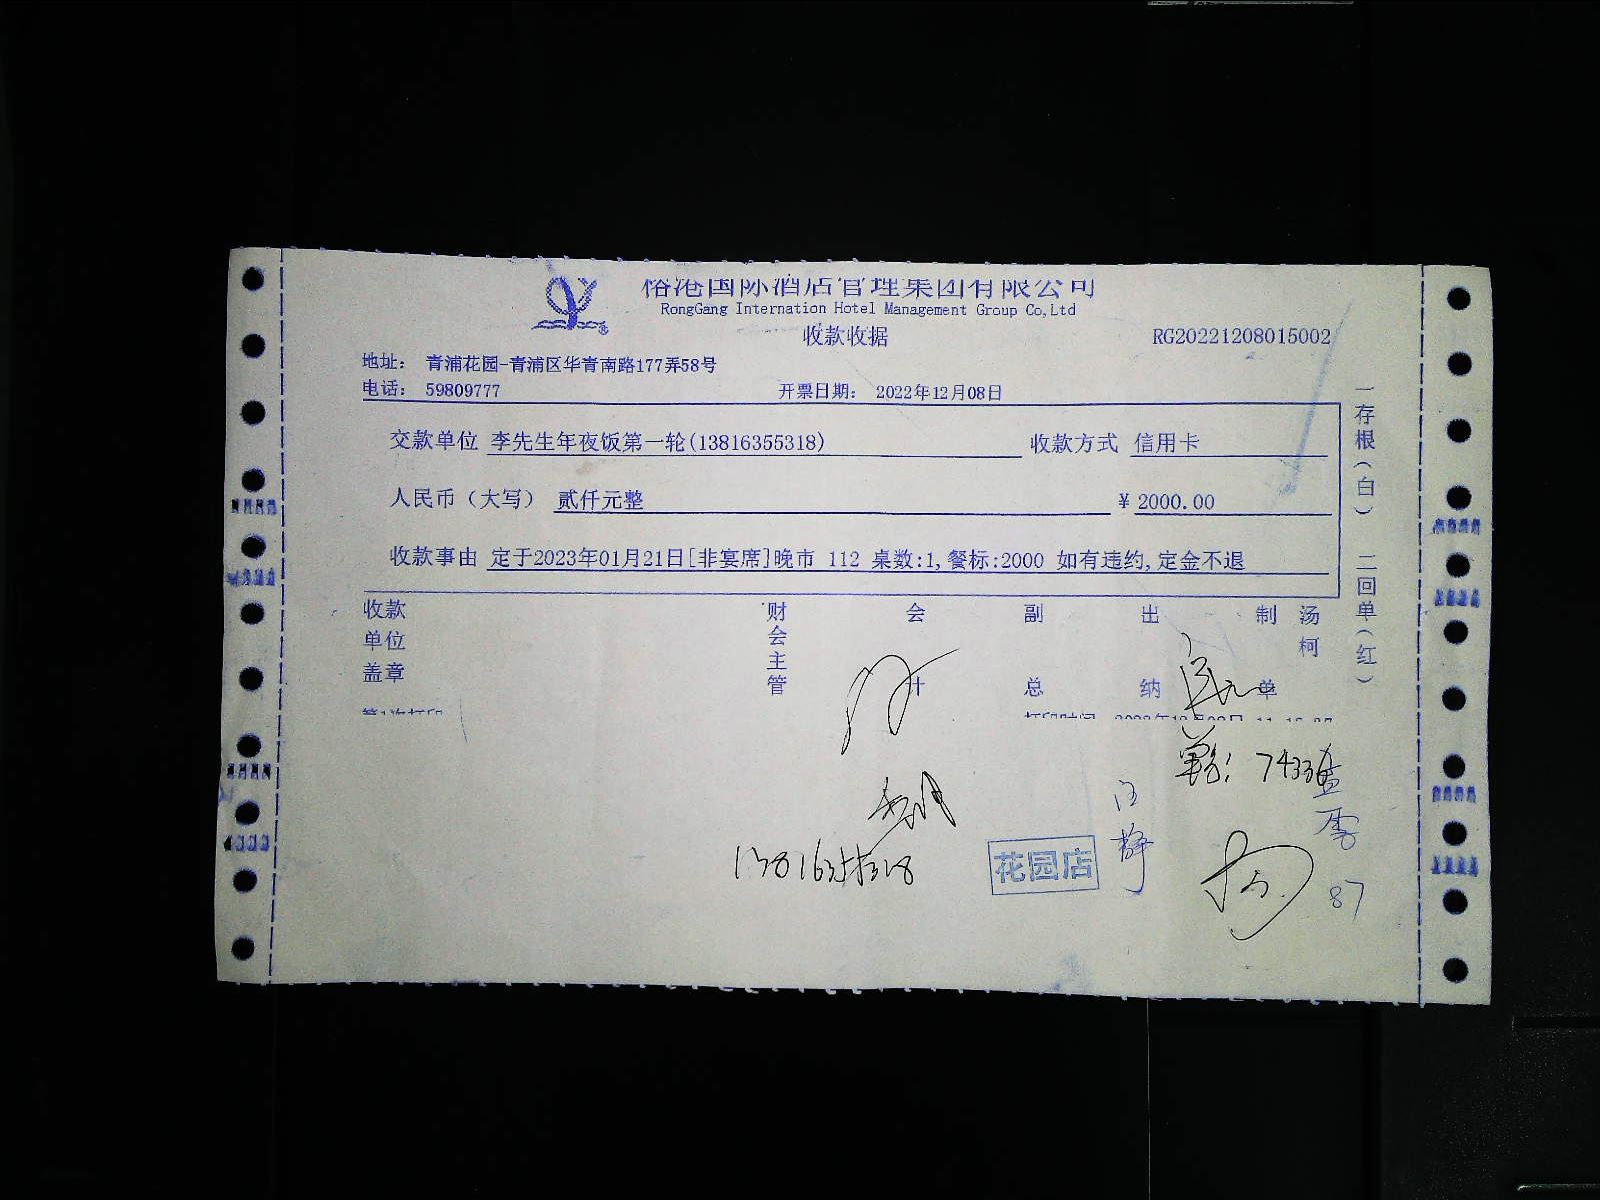 裕港国际酒店管理集团有限公司
RongGang Internation Hotel Management Group Co,Ltd
收款收据
RG20221208015002
地址: 青浦花园-青浦区华青南路177弄58号
电话: 59809777 开票日期: 2022年12月08日
交款单位 李先生年夜饭第一轮(13816355318) 收款方式 信用卡
人民币(大写) 贰仟元整 ¥ 2000.00
收款事由 定于2023年01月21日[非宴席]晚市 112 桌数:1,餐标:2000 如有违约,定金不退
收款单位盖章 财会主管 会计 副总 出纳 制单 汤柯
一存根(白) 二回单(红)
花园店
汪静
87